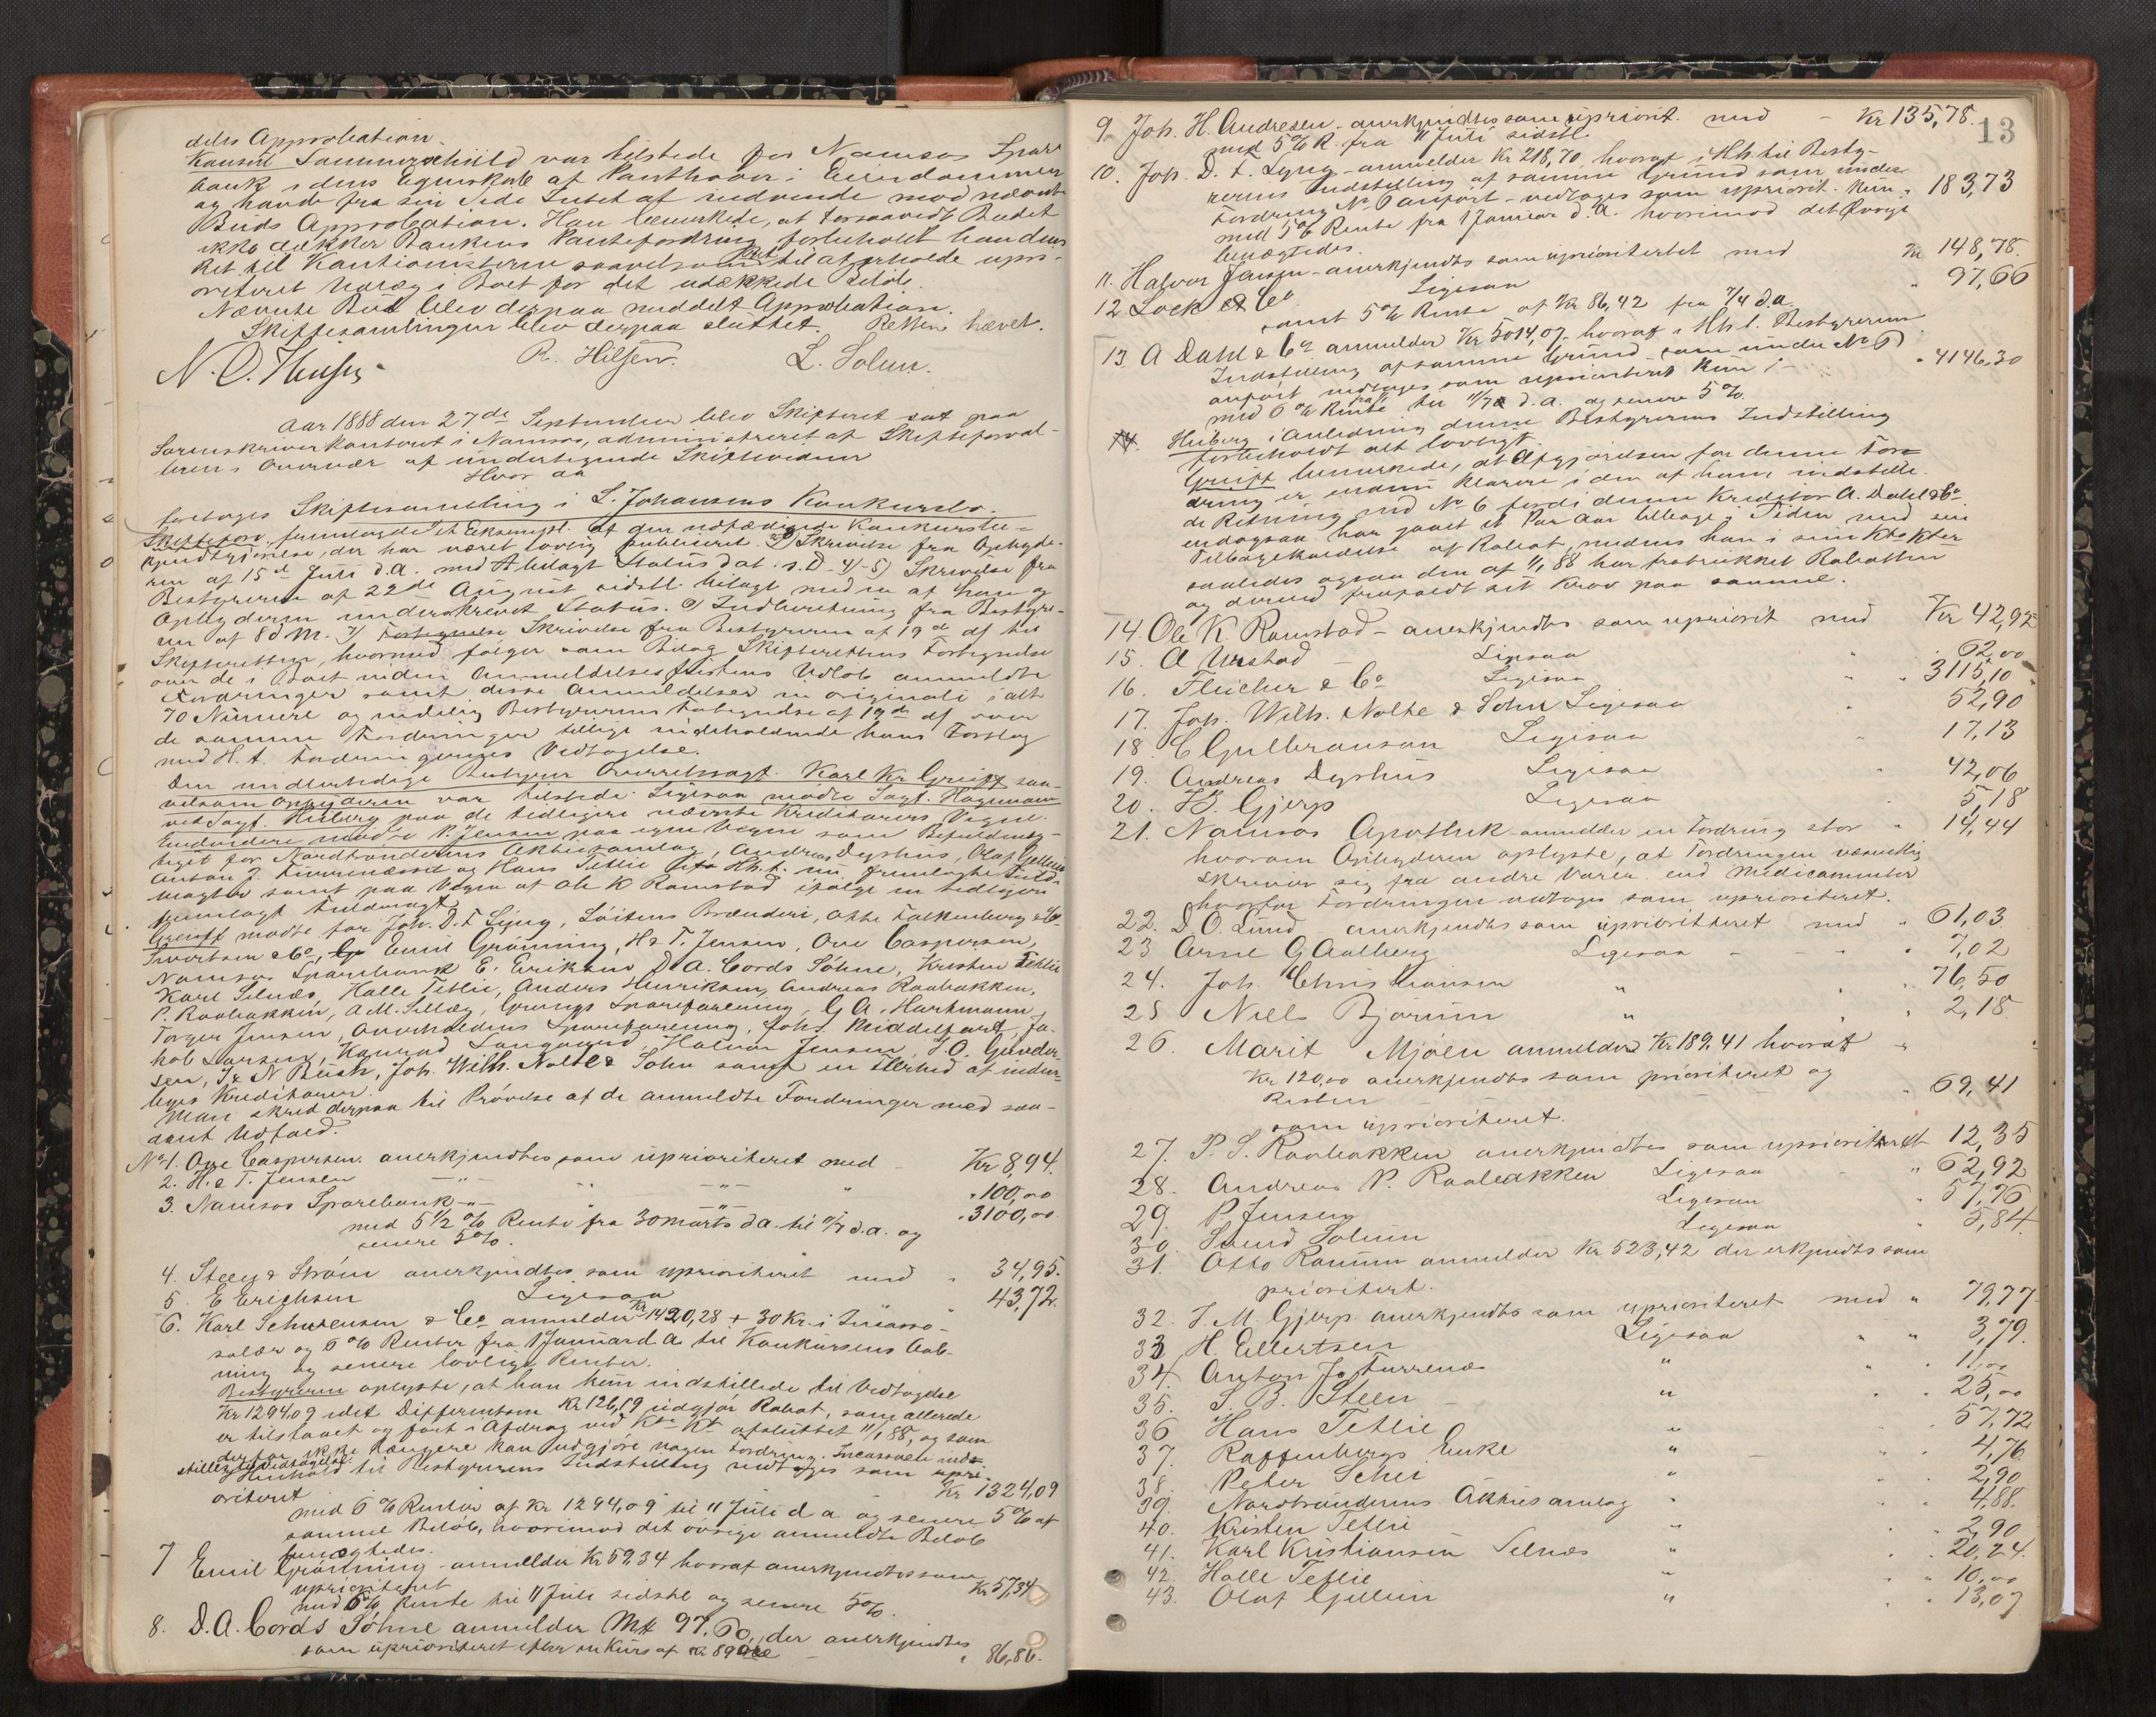 dets Approbation.
Konsul Sommerschild var tilstede for Namsos Spare
bank i dens Egenskab af Panthaver i Eiendommen
og havde fra sin Side Intet at indvende mod nævnte
Buds Approbation. Han bemærkede, at forsaavidt Budet
ikke dækker Bankens Pantefordring forbeholdt han dens
Ret til Kautionisterne saavelsom Ret til at erholde upri-
oriteret Udlæg i Boet for det udækkede Beløb.
Nævnte Bud blev derpaa meddelt Approbation.
Skiftesamlingen blev derpaa sluttet. Retten hævet.
R. Hilsen. L. Solum.
Aar 1888 den 27de September blev Skifteret sat paa
Sorenskriverkontoret i Namsos, administreret af Skifteforval-
teren i Overvær af undertegnede Skiftevidner
Hvor da
foretoges Skiftesamling i L. Johansens Konkursbo.
Skiftefor. fremlagde et Exempl. af den udfærdigede Konkursbe-
kjendtgjørelse, der har været lovlig publiceret. Skrivelse fra Opbyde-
ren af 15de Juli d.A. med bilagt Status dat. s.D. 4)-5) Skrivelse fra
Bestyreren af 22de August sidstl. bilagt med en af ham og
Opbyderen underskrevet Status. 6) Indberetning fra Bestyre-
ren af 8 d.M. 7) Skrivelse fra Bestyreren af 19de ds til
Skifteretten, hvormed følger som Bilag Skifterettens Fortegnelse
over de i Boet inden Anmeldelsesfristens Udløb anmeldte
Fordringer samt disse Anmeldelser in originali ialt
70 Numere og endelig Bestyrerens Fortegnelse af 19de ds over
de samme Fordringer tillige indeholdende hans Forslag
med H.t. Fordringernes Vedtagelse.
Den midlertidige Bestyrer Overretssagf. Karl Kr Greiff saa-
velsom Opbyderen var tilstede. Ligesaa mødte Sagf. Hagemann
ved Sagf. Heiberg paa de tidligere nævnte Kreditorers Vegne.
Endvidere mødte P. Jensen paa egne Vegne som Befuldmæg-
tiget for Nordtrønderens Aktiesamlag, Andreas Dyshus, Olaf Gjellum
Anton J. Furrenæs og Hans Tetlie Hh.t. nu fremlagte Fuld-
magter samt paa Vegne af Ole K Ramstad ifølge en tidligere
fremlagt Fuldmagt.
Greiff mødte for Joh. D. F Lyng, Løitens Brænderi, Otto Falkenberg & Co
Sivertsen & Co, Emil Grønning, H & T. Jensen, Ove Caspersen,
Namsos Sparebank E. Eriksen, D. A. Cords Söhne, Kristen Tetlie
Karl Selnæs, Halle Tetlie, Anders Henriksen, Andreas Raabakken,
P. Raabakken, A.M. Sellæg, Grongs Spareforening, G A. Hartmann
Torger Jensen, Overhaldens Spareforening, Johs. Middelfart, Ja-
kob Larsen, Konrad Langaard, Halvor Jensen, J.O. Gunder-
sen, J & N Busch, Joh. Wilh. Nolte & Sohn samt en Flerhed af inden-
byes Kreditorer.
Man skred derpaa til Prøvelse af de anmeldte Fordringer med saa-
dant Udfald.
No 1. Ove Caspersen anerkjendtes som uprioriteret med Kr 894.
2. H. & T. Jensen -"- " -"- " " 100,00
3. Namsos Sparebank -"- " -"- " 3100,00
med 5 1/2 % Rente fra 30 marts d.a. til 11/7 d.a. og
senere 5%.
4. Steen & Strøm anerkjendtes som uprioriteret med " 34,95.
5. E Erichsen Ligesaa " 43,72.
6. Karl Schwensen & Co anmelder Kr 1420,28 + 30 Kr. i Incasso-
salær og 6 % Renter fra 1 Januar d A til Konkursens Aab-
ning og senere lovlige Renter.
Bestyreren oplyste, at han kun indstillede til Vedtagelse
Kr 1294,09 idet Differentsen Kr 126,19 udgjør Rabat, som allerede
er tilstaaet og ført i Afdrag ved Kto Kt afsluttet 1/1 88, og som
derfor ikke længere kan udgjøre nogen Fordring. Incassoen ind-
stilles til Vedtagelse.
Henhold til Bestyrerens Indstilling vedtoges som upri-
oriteret Kr 1324,09
med 6 % Renter af Kr 1294,09 til 11 Juli d a og senere 5% af
samme Beløb, hvorimod det øvrige anmeldte Beløb
benegtedes.
7 Emil Grønning anmelder Kr 59.34 hvoraf anerkjendtes som
uprioriteret Kr 57,34
med 6% Rente til 11 Juli sidstl og senere 5%.
8. D. A. Cords Söhne anmelder Mk 97.60, der anerkjendtes
som uprioriteret efter en Kurs af Kr 89 " 86,86.
13
9 Joh. H. Andresen - anerkjendtes som upriorit. med - Kr 135,78.
med 5% R. fra 11 Juli sidstl.
10. Joh. D. F. Lyng - anmelder Kr 218,70 hvoraf i Hh. til Besty-
rerens Indstilling af samme Grund som under
Fordring No 6 anført - vedtoges som upriorit. kun " 183,73
med 5% Rente fra 1 Januar d.A. hvorimod det Øvrige
benegtedes.
11. Halvor Jensen - anerkjendtes som uprioriteret med Kr 148,78.
12 Lock & Co Ligesaa " 97,66
samt 5% Rente af Kr 86,42 fra 7/4 d.a.
13. A Dahl & Co anmelder Kr 5014,07 hvoraf i Hh. t. Bestyrerens
Indstilling af samme Grund som under No 6
anført vedtoges som uprioriteret kun " 4146,30
med 6 % Rente til 11/7 d.a. og senere 5%.
Heiberg i Anledning denne Bestyrerens Indstilling
forbeholdt alt lovligt.
Greiff bemærkede, at Afgjørelsen for denne For-
dring er endnu klarere i den af ham indstille-
de Retning end No 6 fordi denne Kreditor A. Dahl & Co
endogsaa har gaaet et Par Aar tilbage i Tiden med sin
Tilbagekaldelse af Rabat, medens han i sine Kto Kter
saaledes ogsaa den af 1/1 88 har fratrukket Rabatten
og derved frafaldt sit Krav paa samme.
14. Ole K Ramstad - anerkjendtes som upriorit med Kr 42,92
15. A Urstad - Ligesaa " 62,00
16. Fleicher & Co Ligesaa " " 3115,10
17. Joh. Wilh. Nolte & Sohn Ligesaa " 52,90
18 C Gulbranson Ligesaa " 17,13
19. Andreas Dyshus Ligesaa " 42,06
20. Gjerp Ligesaa " 5,18
21. Namsos Apothek anmelder en Fordring stor " 14,44
hvorom Opbyderen oplyste, at Fordringen væsentlig
skriver sig fra andre Varer end Medicamenter
hvorfor Fordringen vedtoges som uprioriteret.
22. D. O. Lund - anerkjendtes som uprioriteret med " 61,03
23 Arne G Aalberg Ligesaa - - " 7,02
24. Joh. Christiansen " " 76,50
25 Niels Bjørum " " 2,18
26. Marit Mjøen anmelder Kr 189,41 hvoraf
Kr 120,00 anerkjendtes som prioriteret og
Resten " 69,41
som uprioriteret.
27. P. S. Raabakken anerkjendtes som uprioriteret 12,35
28. Andreas P. Raabakken Ligesaa " 62,92
29. P. Jensen Ligesaa " 57,76
30. Svend Solum Ligesaa " 5,84
31. Otto Ranum anmelder Kr 523,42 der erkjendtes som
prioritert.
32. J. M. Gjerp anerkjendtes som uprioriteret med " 79,77
33 H. Ellertsen Ligesaa " " 3,79
34 Anton J. Furrenæs " " 11,00
35. S. B. Steen " " 25,00
36 Hans Tetlie " 57,72
37. Raffenbergs Enke " 4,76
38. Peter Schei " " 2,90
39. Nordtrønderens Aktiesamlag " 4,88.
40. Kristen Tetlie " " 2,90
41. Karl Kristiansen Selnæs " " 20,24
42. Halle Tetlie " " 10,00
43. Olaf Gjellum " " 13,07